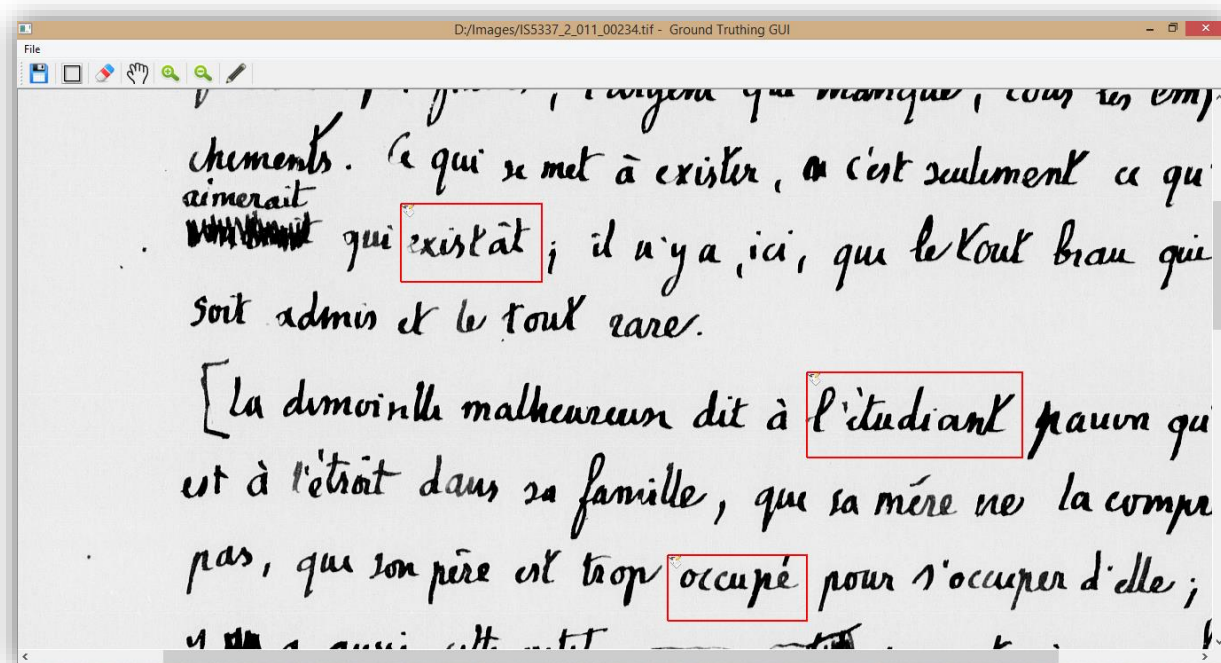 D:/Images/IS5337_2_011_00234.tif - Ground Truthing GUI
File
l'argent qui manque, tous les emp
chements. Ce qui se met à exister, c'est seulement ce qu
aimerait
qui existât ; il n'y a, ici, que le tout beau qui
soit admis et le tout rare.
[La demoiselle malheureuse dit à l'étudiant pauvre qu
est à l'étroit dans sa famille, que sa mère ne la compr
pas, que son père est trop occupé pour s'occuper d'elle ;
a aussi cette